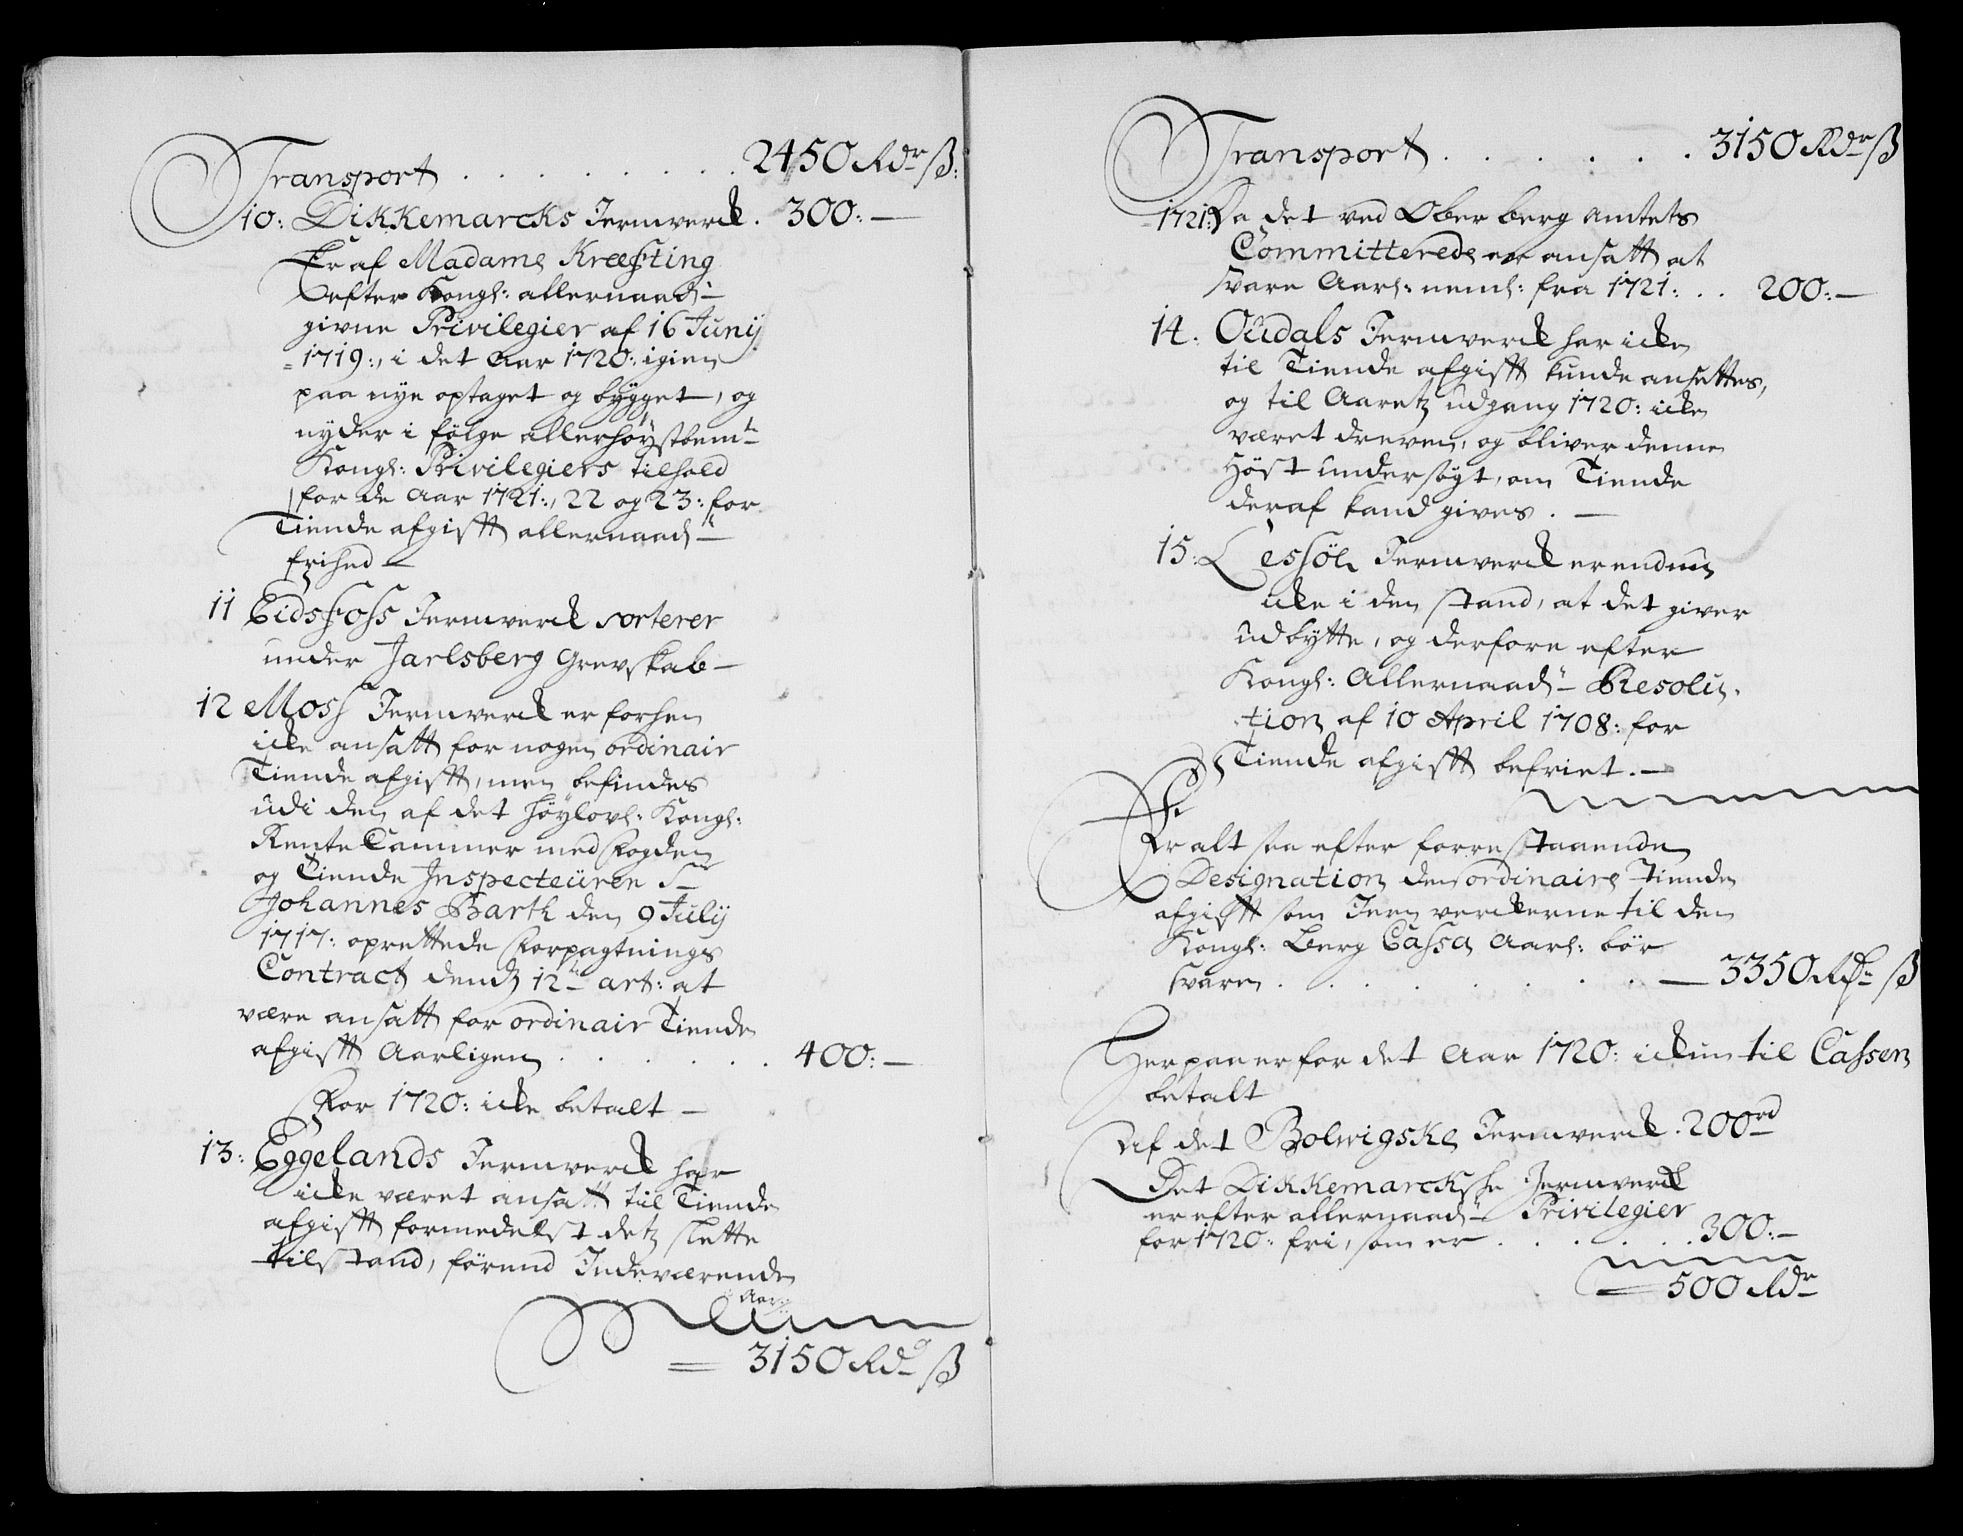 Transport . . . . . . . . 2450 Rdr ß:
10: Dikkemarcks Jernwerck . 300: —
Er af Madame Kreefting
efter Kongl: allernaadl
givne Privilegier af 16 Junij
1719:, i det Aar 1720: igien
paa nye optaget og bygget, og
nyder i følge allerhøystbemte
Kongl: Privilegiers tilhold
for de Aar 1721:, 22 og 23: for
Tiende afgifft allernaadl
frihed —
11 Eidsfoss Jernwerck sorterer
under Jarlsberg Grevskab —
12 Moss Jernwerck er forhen
icke ansatt for nogen ordinair
Tiende afgifft, men befindes
udi den af det høylovl: Kongl:
Rente Cammer med Fogden
og Tiende Inspecteuren Sr
Johannes Barth den 9 Julij
1717: oprettede Forpagtnings
Contract dends 12te art: at
være ansatt for ordinair Tiende
afgifft Aarligen . . . . . . 400: —
For 1720: icke betalt —
13: Eggelands Jernwerck har
icke været ansatt til Tiende
afgifft formedelst dets slette
tilstand, førend Indeværende
Aar:
= 3150 Rdr ß
Transport . . . . . . 3150 Rdr ß
1721: Da det ved Ober berg Amtets
Committerede er ansatt at
svare Aarl: neml: fra 1721: . . 200: —
14: Oudals Jernwerck har icke
til Tiende afgifft kunde ansettes,
og til Aarets udgang 1720: icke
været dreven, og bliver denne
Høst undersøgt, om Tiende
deraf kand gives . —
15: Lessøe Jernwerck er endnu
icke i den stand, at det giver
udbytte, og derfore efter
Kongl: Allernaadl Resolu-
tion af 10 April 1708: for
Tiende afgifft befriet. —
Er alt saa efter forrestaaende
Designation den ordinaire Tiende
afgifft som Jern werckerne til den
Kongl: Berg Cassa Aarl: bør
svare . . . . . . . . . — 3350 Rdr ß
Herpaa er for det Aar 1720: icke til Cassen
betalt
Af det Bolwigske Jernwerck . 200rd
Det Dikkemarckske Jernwerck
er efter allernaadl Privilegier
for 1720: fri, som er . . . . . . 300: —
= 500 Rdr